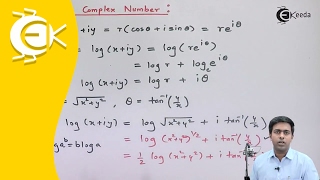 Complex Number :
Ekeeda
+iy = r(cosθ + i sinθ) = re^{iθ}
log(x+iy) = log(re^{iθ})
= log r + log e^{iθ}
log(x+iy) = log r + iθ
= √x²+y² , θ = tan⁻¹(y/x)
log(x+iy) = log √x²+y² + i tan⁻¹(y/x)
a^b = b log a
= log (x²+y²)^{1/2} + i tan⁻¹(y/x)
= ½ log (x²+y²) + i tan